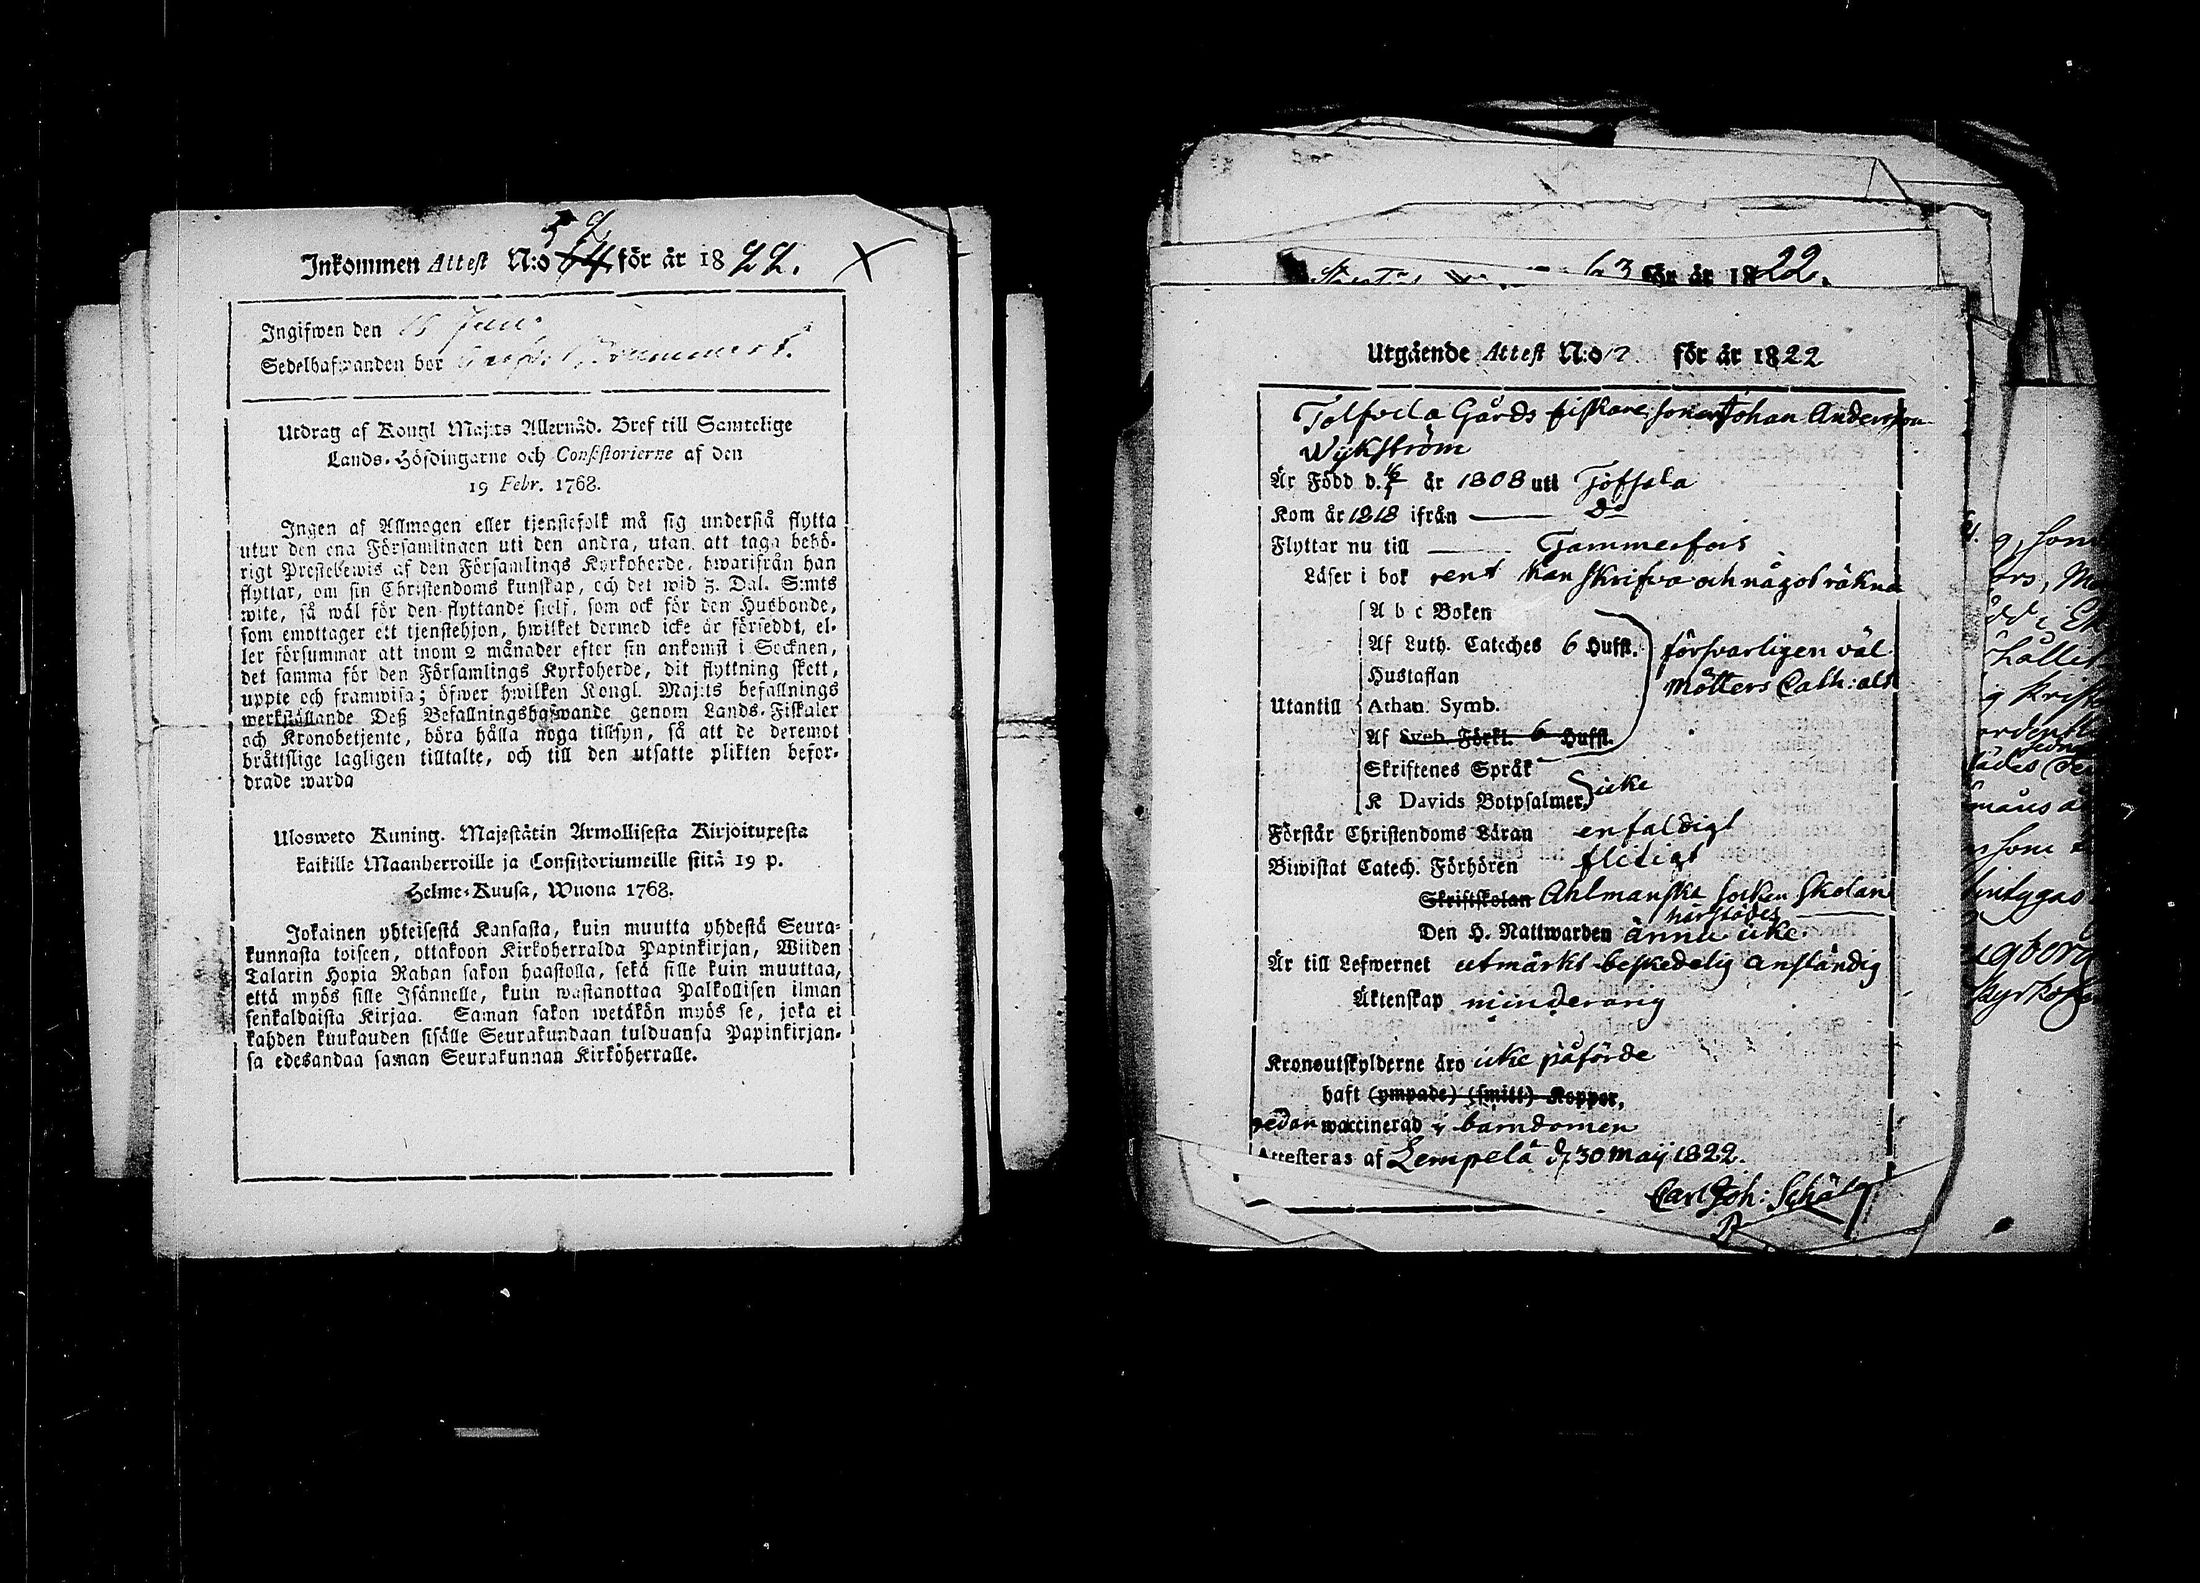 52
Inkommen Attest N:o 54 för är 1822. X
Ingifwen den 15 Juni
Sedelhafwanden bor
Utdrag af Kongl Maj:ts Allernåd. Bref till Samtelige
Lands-Höfdingarne och Consistorierne af den
19 Febr. 1768.
Ingen af Allmogen eller tjenstefolk må sig understå flytta
utur den ena Församlingen uti den andra, utan att taga behö-
rigt Prestebewis af den Församlings Kyrkoherde, hwarifrån han
flyttar, om sin Christendoms kunskap, och det wid 3. Dal. S:mts
wite, så wäl för den flyttande sjelf, som ock för den Husbonde,
som emottager ett tjenstehjon, hwilket dermed icke är försedt, el-
ler försummar att inom 2 månader efter sin ankomst i Socknen,
det samma för den Församlings Kyrkoherde, dit flyttning skett,
uppte och framwisa; öfwer hwilken Kongl. Maj:ts befallnings
werkställande Deß Befallningshafwande genom Lands-Fiskaler
och Kronobetjente, böra hålla noga tillsyn, så att de deremot
bråttslige lagligen tilltalte, och till den utsatte plikten befor-
drade warda
Ulosweto Kuning. Majestätin Armollisesta Kirjoituxesta
kaikille Maanherroille ja Consistoriumeille siitä 19 p.
Helme-Kuusa, Wuona 1768.
Jokainen yhteisestä Kansasta, kuin muutta yhdestä Seura-
kunnasta toiseen, ottakoon Kirkoherralda Papinkirjan, Wiiden
Talarin Hopia Rahan sakon haastolla, sekä sille kuin muuttaa,
että myös sille Isännelle, kuin wastanottaa Palkollisen ilman
senkaldaista Kirjaa. Saman sakon wetäkön myös se, joka ei
kahden kuukauden sisälle Seurakundaan tulduansa Papinkirjan-
sa edesandaa saman Seurakunnan Kirköherralle.
63 för år 1822.
Utgående Attest N:o 12 för är 1822
Tolfvela Gårds fiskare sonen Johan Andersson
Wykström
Är Född d. är 1808 uti Töfsala
Kom år 1818 ifrån do
Flyttar nu till Tammerfors
Läser i bok rent kan skrifva och något räkna
A b c Boken
Af Luth. Cateches 6 Hufst. försvarligen väl
Hustaflan Möllers Cath: alt
Utantill Athan. Symb.
Af Sveb. Förkl. 6 Hufst.
Skriftenes Språk
K Davids Botpsalmer icke
Förstår Christendoms Läran enfaldigt
Biwistat Catech. Förhören flitigt
Skriftskolan Ahlmanska socken skolan
härstädes
Den H. Nattwarden ännu icke
Är till Lefwernet utmärkt beskedelig anständig
Äktenskap minderårig
Kronoutskylderne äro icke påförde
haft (ympade) (smitt) Koppor,
sedan waccinerad i barndomen
Attesteras af Lempelä d. 30 Maij 1822.
Carl Joh: